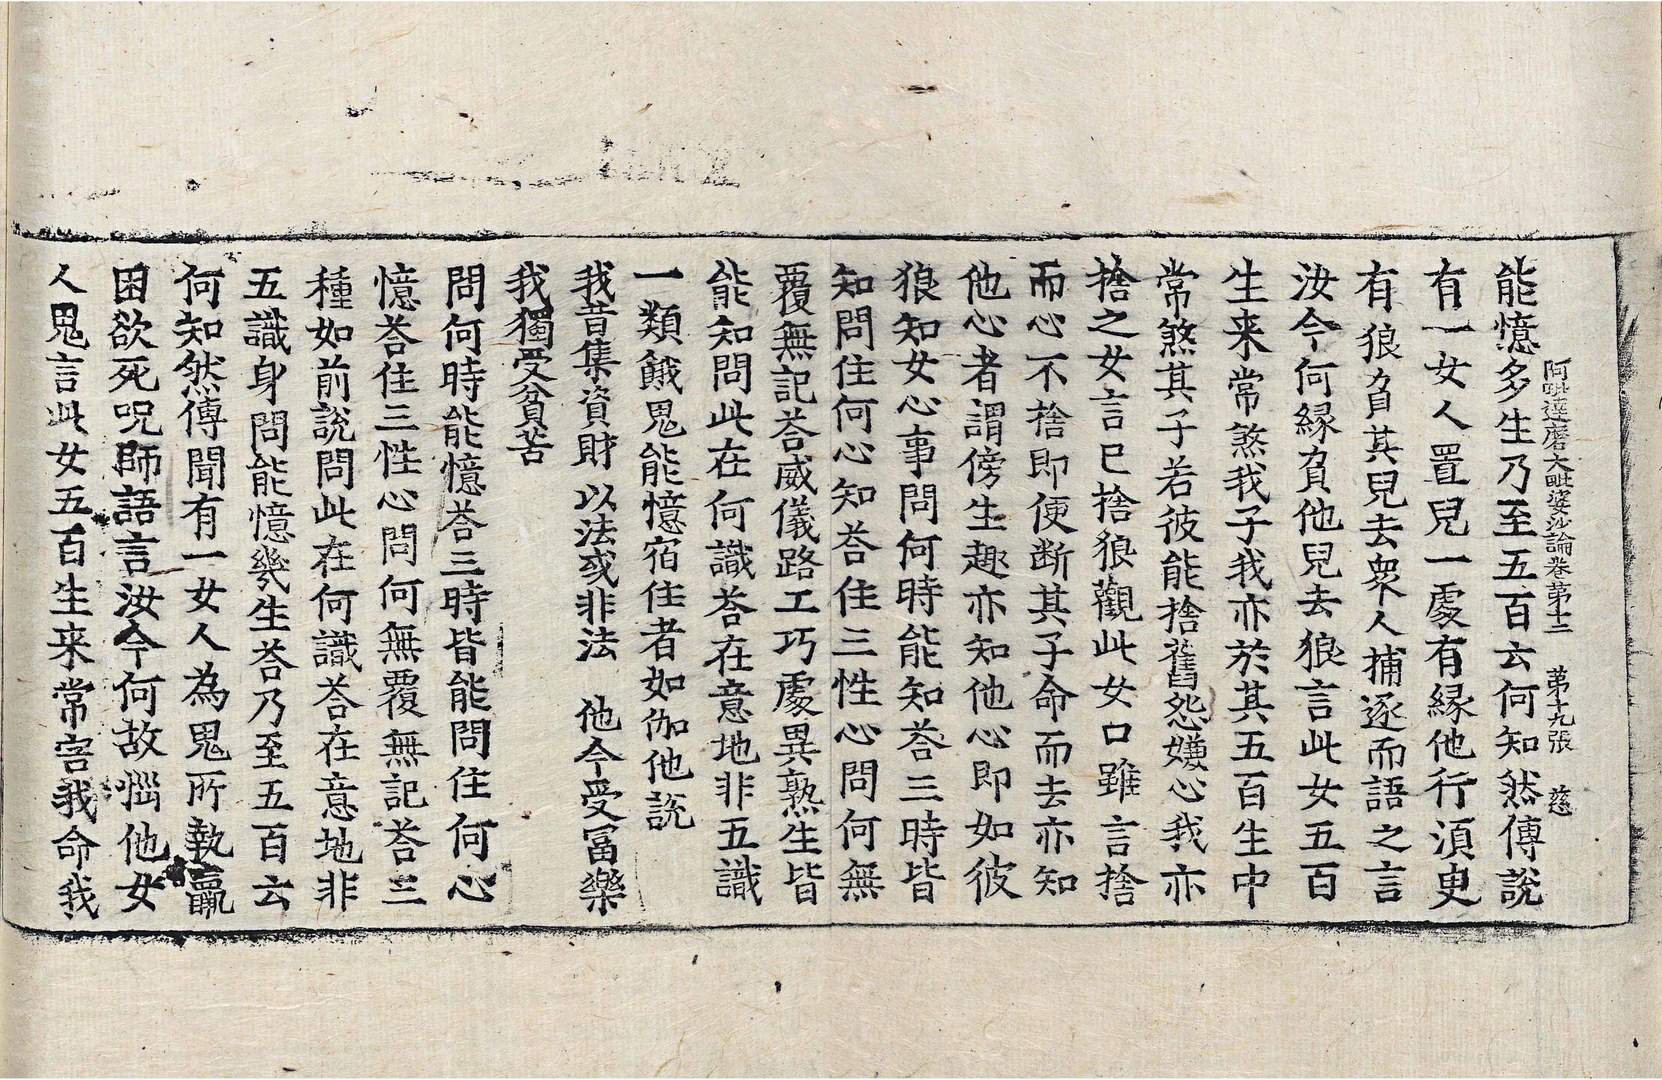 阿毗達磨大毗婆沙論卷第十二　第十九張　慈
能憶多生乃至五百云何知然傳說
有一女人置兒一處有縁他行湏臾
有狼負其兒去衆人捕逐而語之言
汝今何縁負他兒去狼言此女五百
生来常煞我子我亦於其五百生中
常煞其子若彼能捨舊怨嫌心我亦
捨之女言已捨狼觀此女口雖言捨
而心不捨即便断其子命而去亦知
他心者謂傍生趣亦知他心即如彼
狼知女心事問何時能知荅三時皆
知問住何心知荅住三性心問何無
覆無記荅威儀路工巧處異熟生皆
能知問此在何識荅在意地非五識
一類餓鬼能憶宿住者如伽他說
我昔集資財　以法或非法　他今受冨樂
我獨受貧苦
問何時能憶荅三時皆能問住何心
憶荅住三性心問何無覆無記荅三
種如前說問此在何識荅在意地非
五識身問能憶幾生荅乃至五百云
何知然傳聞有一女人為鬼所執羸
困欲死呪師語言汝今何故惱他女
人鬼言此女五百生来常害我命我